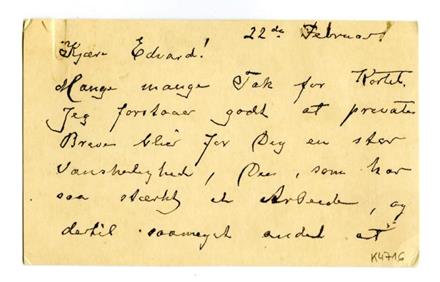 22de Februar!
Kjære Edvard!
Mange mange Tak for Kortet.
Jeg forstaaer godt at private
Breve blir for Dig en stor
Vanskelighed, Du, som har
saa stærkt et Arbeide, og
dertil saameget andet at
K4716